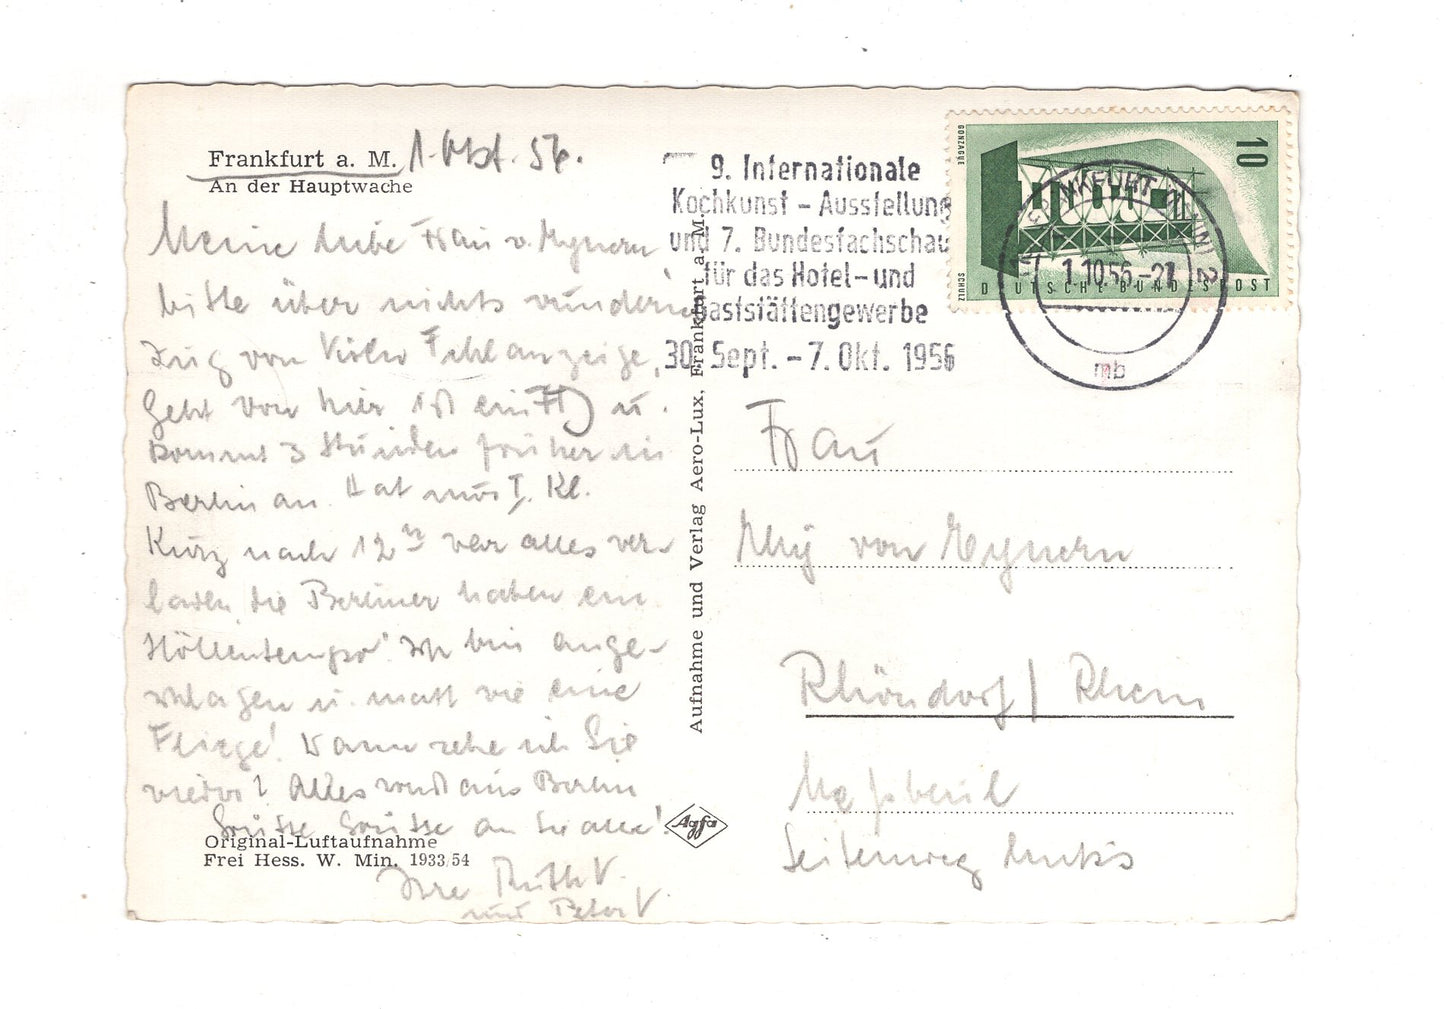 Frankfurt a. M. 1. Okt. 56.
An der Hauptwache
Meine liebe Frau v. Eynern
bitte über nichts wundern
Zug von Köln Fehlanzeige,
Geht von hier ist ein FD u.
kommt 3 Stunden früher in
Berlin an. Hat nur I. Kl.
Kurz nach 12 war alles ver-
laden, die Berliner haben ein
Höllentempo! Ich bin ange-
schlagen u. matt wie eine
Fliege! Wann sehe ich Sie
wieder? Alles weitere aus Berlin
Grüße Grüße an Sie alle!
Original-Luftaufnahme
Frei Hess. W. Min. 1933/54
Ihre Ruth V.
und Peter V.
Aufnahme und Verlag Aero-Lux, Frankfurt a. M.
Agfa
9. Internationale
Kochkunst - Ausstellung
und 7. Bundesfachschau
für das Hotel- und
Gaststättengewerbe
30. Sept. - 7. Okt. 1956
GONZAGUE
SCHULZ
10
DEUTSCHE BUNDESPOST
FRANKFURT (MAIN) 2
1.10.56-21
mb
Frau
von Eynern
Rhöndorf / Rhein
Seitenweg links